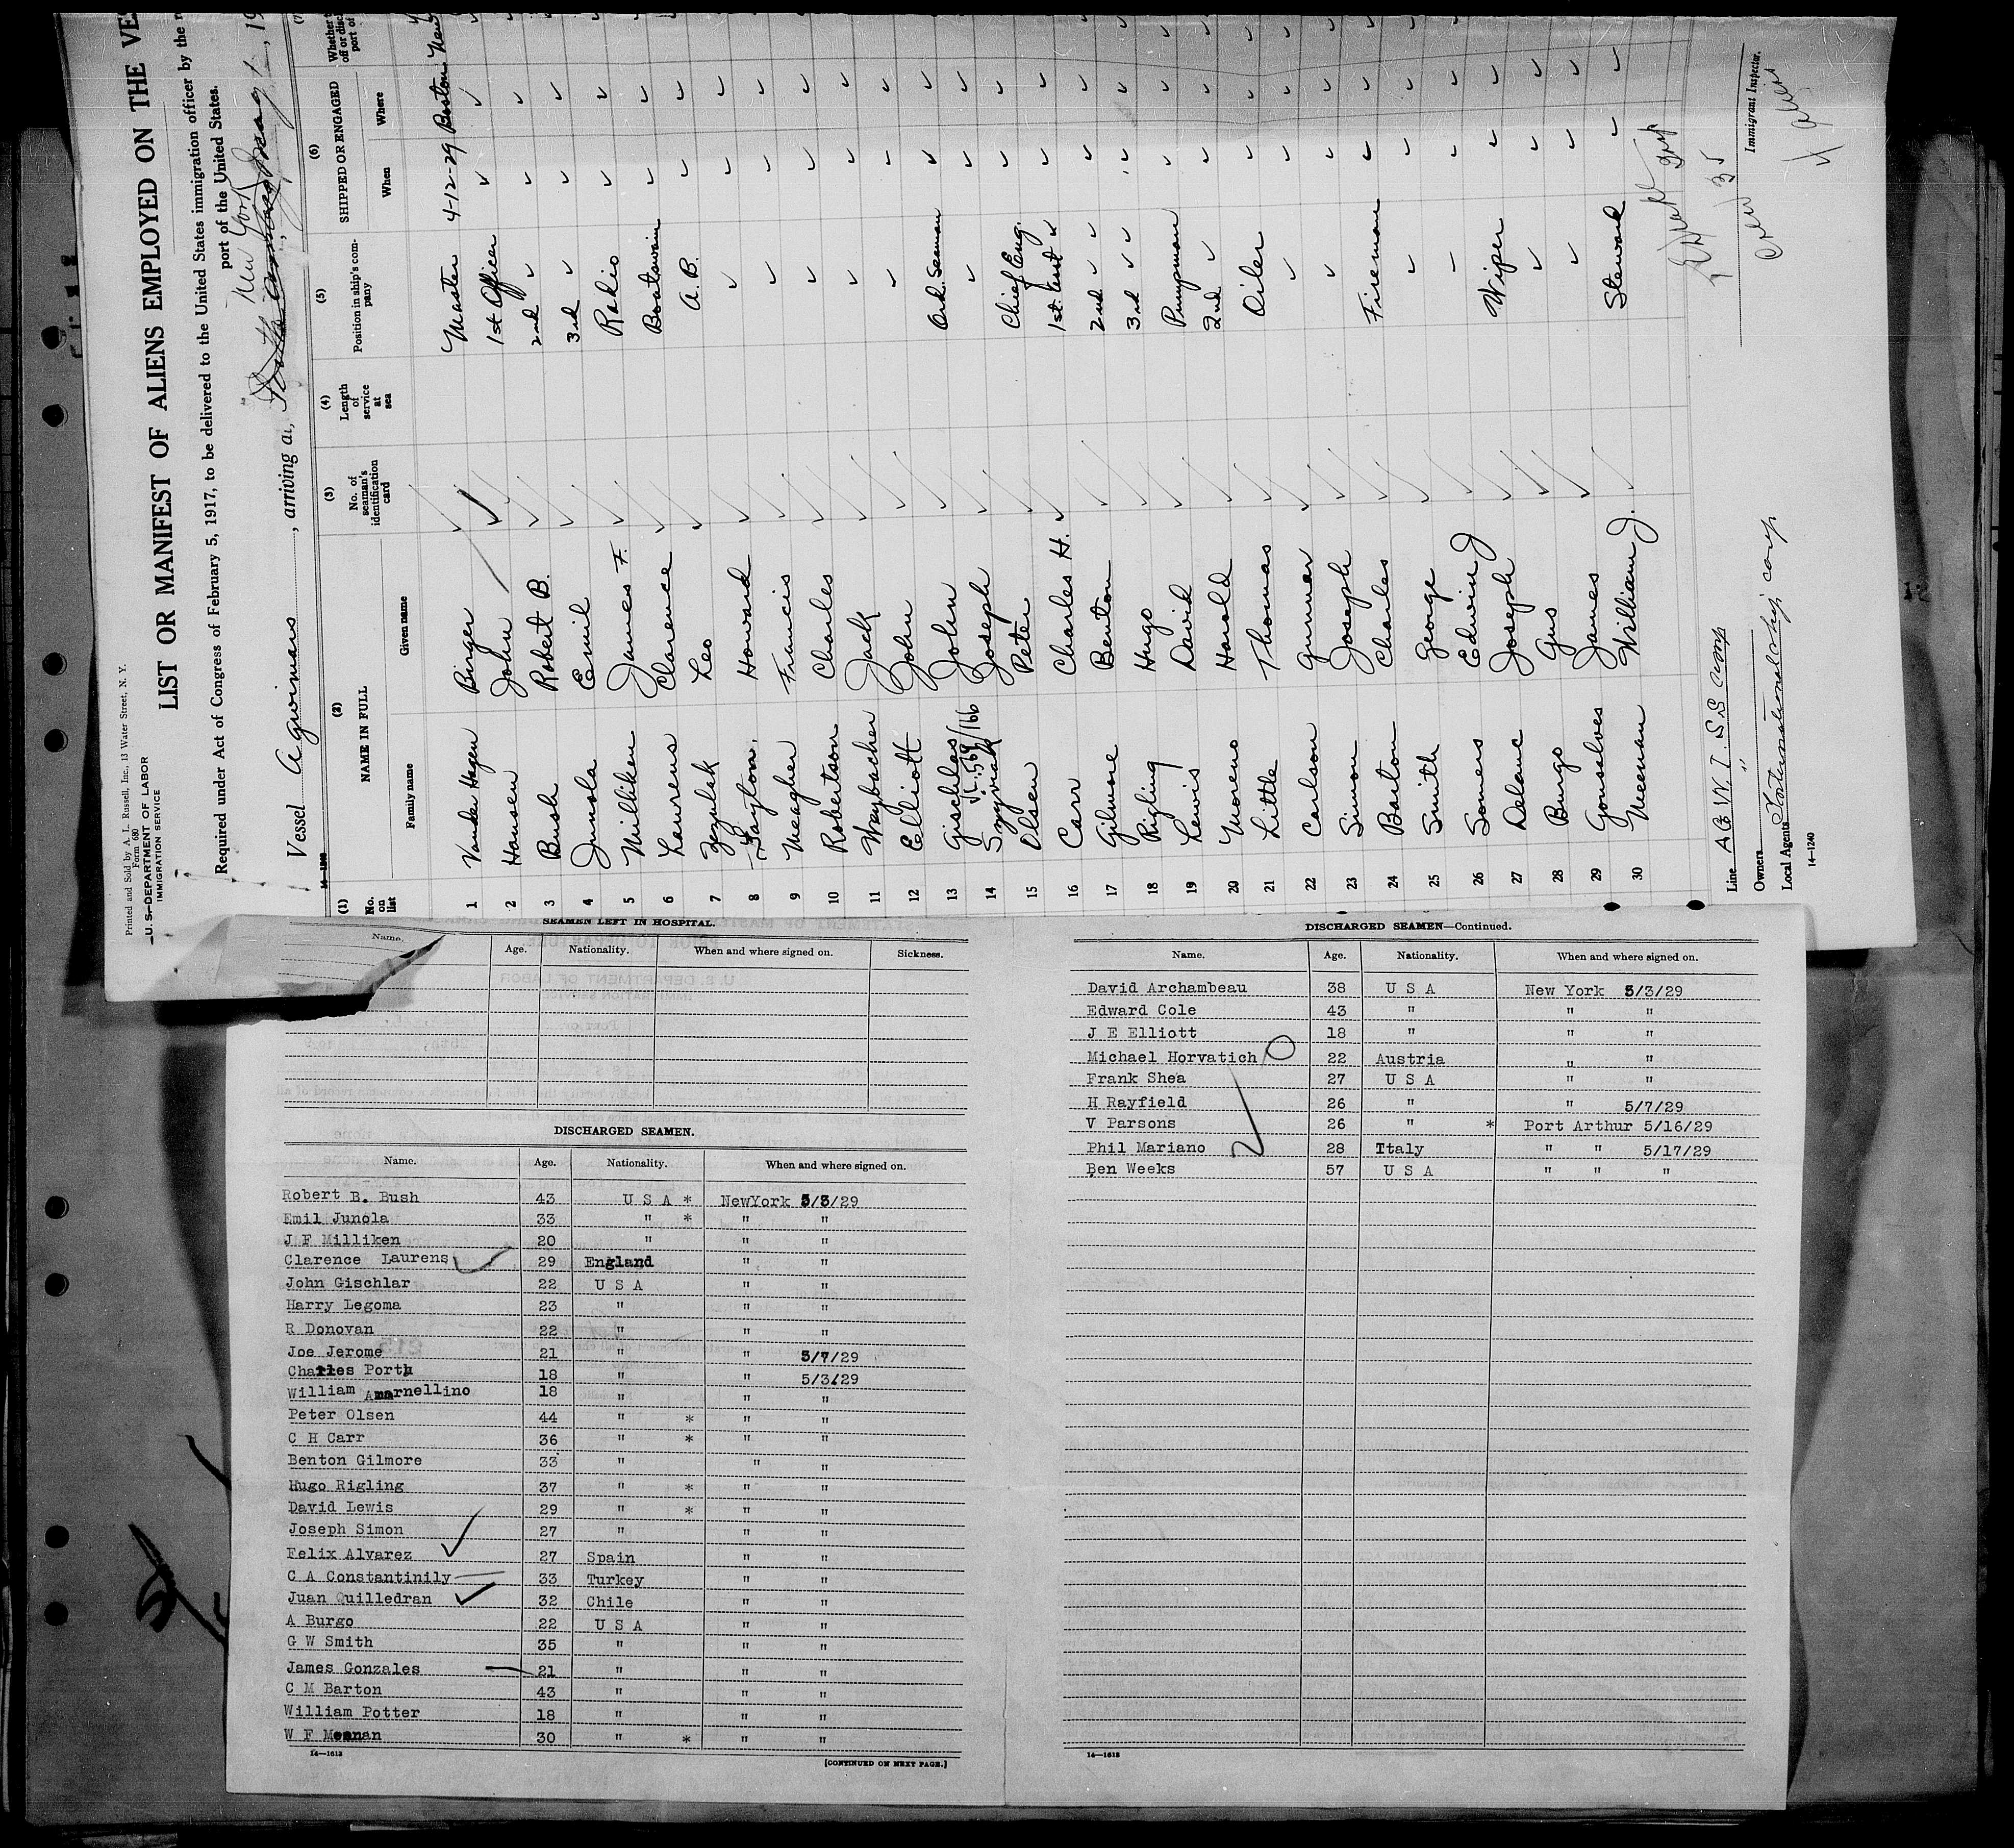 Printed and Sold by A. L. Russell, Inc., 13 Water Street, N. Y.
Form 680
U. S. DEPARTMENT OF LABOR
IMMIGRATION SERVICE
LIST OR MANIFEST OF ALIENS EMPLOYED ON THE VES
Required under Act of Congress of February 5, 1917, to be delivered to the United States immigration officer by the r
port of the United States.
New York
Vessel Agwimars, arriving at, , 19
(1) (2) (3) (4) (5) (6)
No. on list NAME IN FULL No. of seaman's identification card Length of service at sea Position in ship's company SHIPPED OR ENGAGED Whether
Family name Given name When Where
1 Vander Hagen Binger Master 4-12-29 Boston New
2 Hansen John 1st Officer
3 Bush Robert B. 2nd
4 Junola Emil 3rd
5 Milliken James F. Radio
6 Laurens Clarence Boatswain
7 Leo A. B.
8 Howard
9 Meagher Francis
10 Robertson Charles
11 Waybacher Jack
12 Elliott John
13 Gischlar John Ord. Seaman
14 Joseph
15 Olsen Peter Chief Eng.
16 Carr Charles H. 1st Asst
17 Gilmore Benton 2nd
18 Rigling Hugo 3rd
19 Lewis David Pumpman
20 Moreno Harold 2nd
21 Little Thomas Oiler
22 Carlson Gunnar
23 Simon Joseph
24 Barton Charles Fireman
25 Smith George
26 Somers Edwin J
27 Delane Joseph Wiper
28 Burgo Gus
29 Gonsalves James
30 Meenan William J. Steward
Line A G W I S S Comp
Owners "
Local Agents corp
Immigrant Inspector.
14-1240
SEAMEN LEFT IN HOSPITAL.
Name. Age. Nationality. When and where signed on. Sickness.
DISCHARGED SEAMEN.
Name. Age. Nationality. When and where signed on.
Robert B. Bush 43 U S A * NewYork 5/3/29
Emil Junola 33 " * " "
J F Milliken 20 " " "
Clarence Laurens 29 England " "
John Gischlar 22 U S A " "
Harry Legoma 23 " " "
R Donovan 22 " " "
Joe Jerome 21 " " 5/7/29
Charles Porth 18 " " 5/3/29
William Amarnellino 18 " " "
Peter Olsen 44 " * " "
C H Carr 36 " * " "
Benton Gilmore 33 " " "
Hugo Rigling 37 " * " "
David Lewis 29 " * " "
Joseph Simon 27 " " "
Felix Alvarez 27 Spain " "
C A Constantinily 33 Turkey " "
Juan Quilledran 32 Chile " "
A Burgo 22 U S A " "
G W Smith 35 " " "
James Gonzales 21 " " "
C M Barton 43 " " "
William Potter 18 " " "
W F Meenan 30 " * " "
14—1613
[CONTINUED ON NEXT PAGE.]
DISCHARGED SEAMEN—Continued.
Name. Age. Nationality. When and where signed on.
David Archambeau 38 U S A New York 5/3/29
Edward Cole 43 " " "
J E Elliott 18 " " "
Michael Horvatich 22 Austria " "
Frank Shea 27 U S A " "
H Rayfield 26 " " 5/7/29
V Parsons 26 " * Port Arthur 5/16/29
Phil Mariano 28 Ttaly " " 5/17/29
Ben Weeks 57 U S A " " "
14—1613